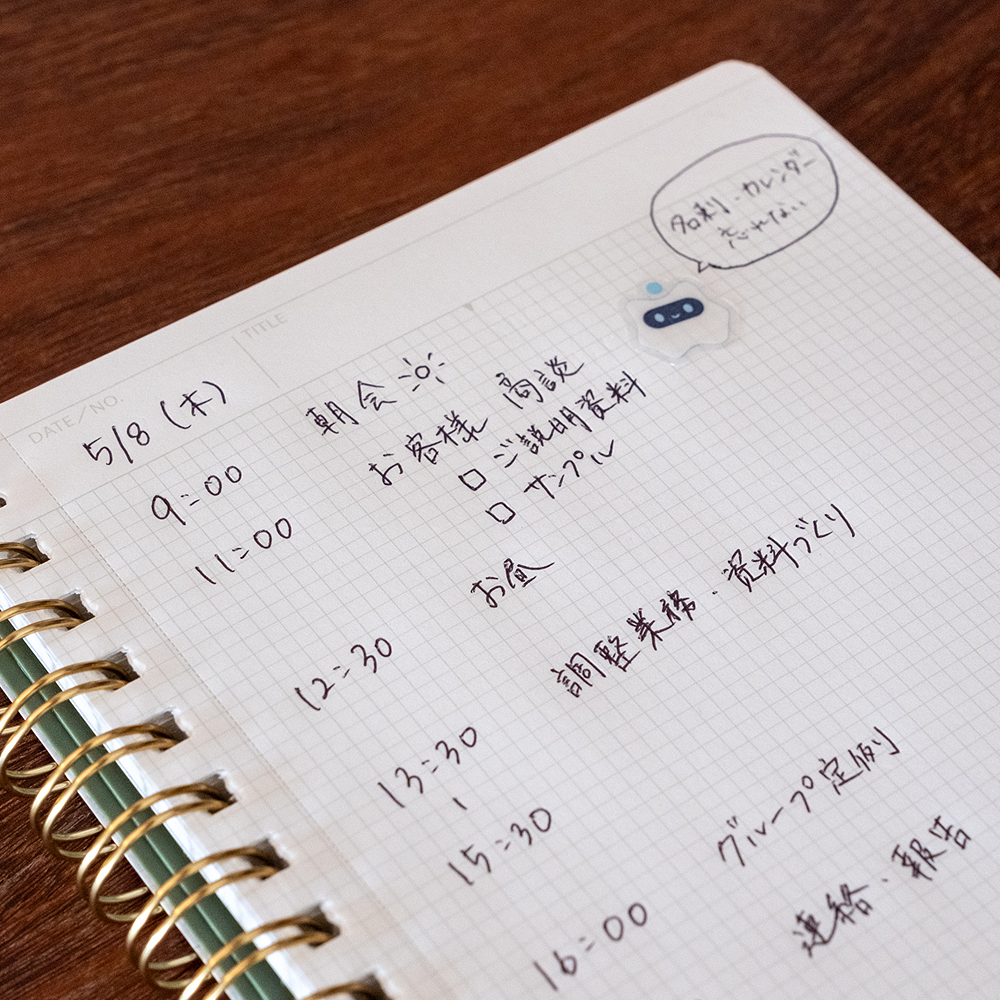 名刺・カレンダー
忘れない
DATE/NO. TITLE
5/8 (木)
9:00 朝会
11:00 お客様 商談
□ ご説明資料
□ サンプル
12:30 お昼
13:30 調整業務・資料づくり
|
15:30
16:00 グループ定例
連絡・報告